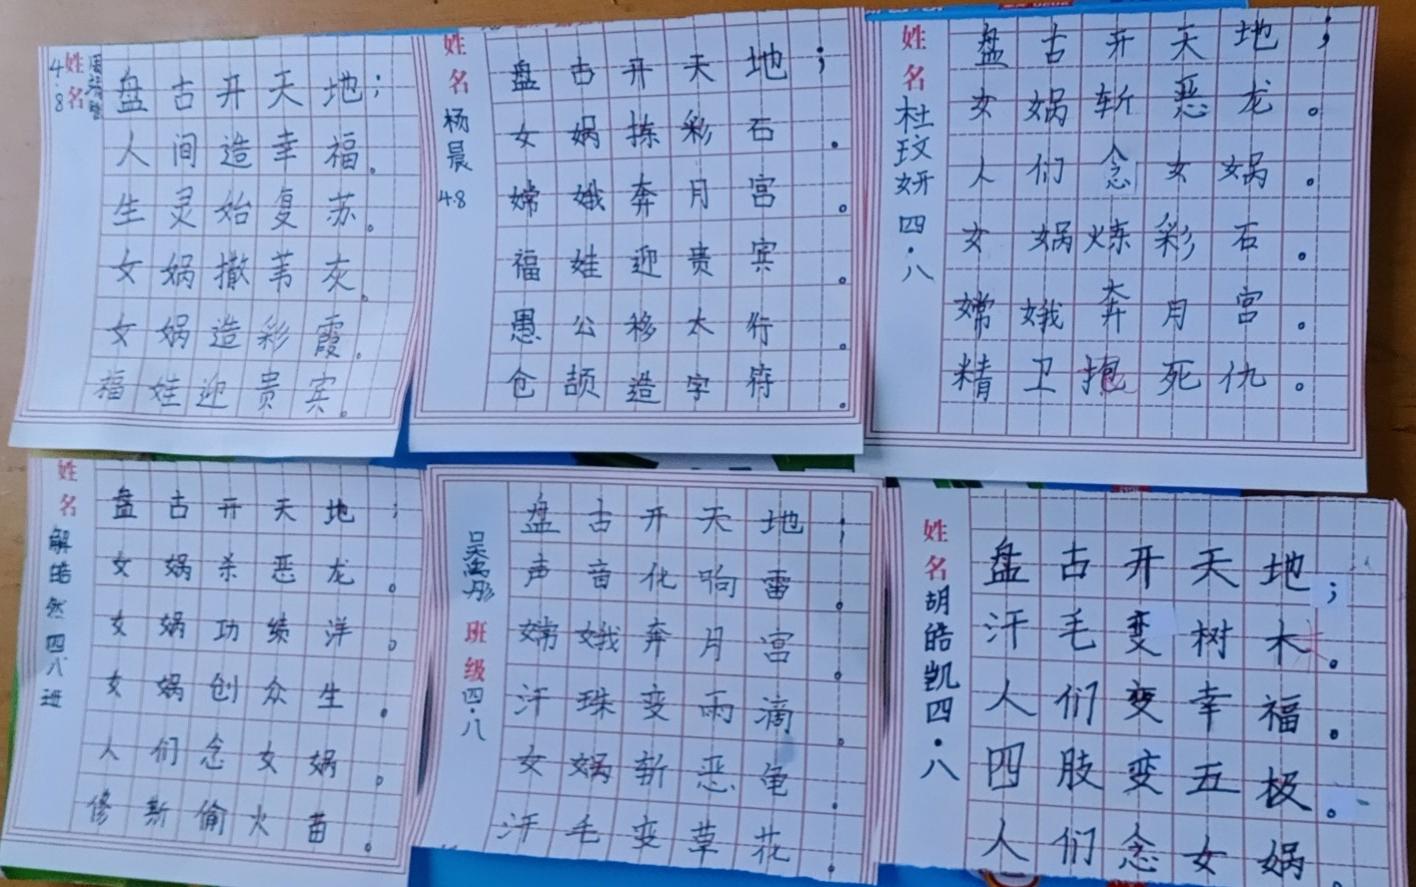 姓名
4.8
盘古开天地；
人间造幸福。
生灵始复苏。
女娲撒苇灰。
女娲造彩霞。
福娃迎贵宾。
姓名 杨晨 4.8
盘古开天地；
女娲拣彩石。
嫦娥奔月宫。
福娃迎贵宾。
愚公移太行。
仓颉造字符。
姓名 杜玟妍 四·八
盘古开天地；
女娲斩恶龙。
人们念女娲。
女娲炼彩石。
嫦娥奔月宫。
精卫抱死仇。
姓名 解皓然 四八班
盘古开天地；
女娲杀恶龙。
女娲功绩洋。
女娲创众生。
人们念女娲。
修斯偷火苗。
班级 四·八
盘古开天地；
声音化响雷。
嫦娥奔月宫。
汗珠变雨滴。
女娲斩恶龟。
汗毛变草花。
姓名 胡皓凯 四·八
盘古开天地；
汗毛变树木。
人们变幸福。
四肢变五极。
人们念女娲